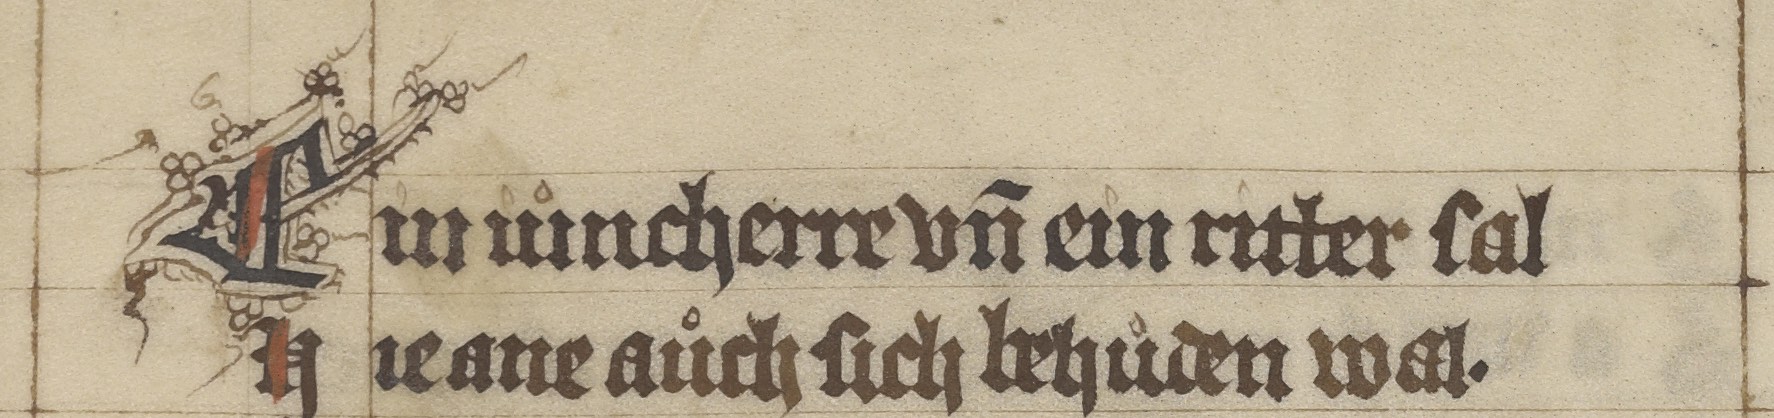 Ein iůncherre vn̄ ein ritter sal
Hie ane aůch sich behůden wal.